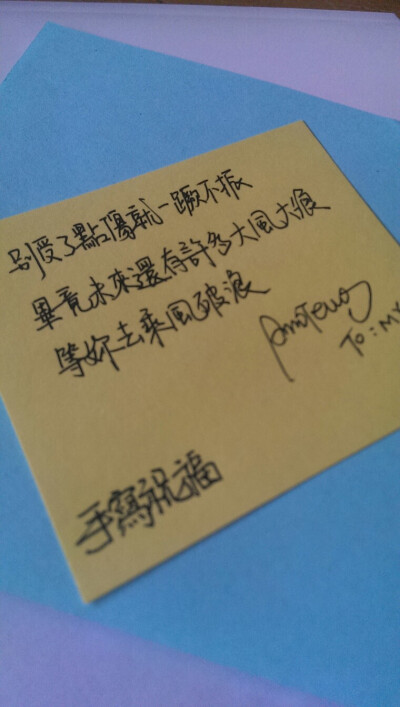 別受了點傷就一蹶不振
畢竟未來還有許多大風大浪
等妳去乘風破浪
To: MY
手寫祝福